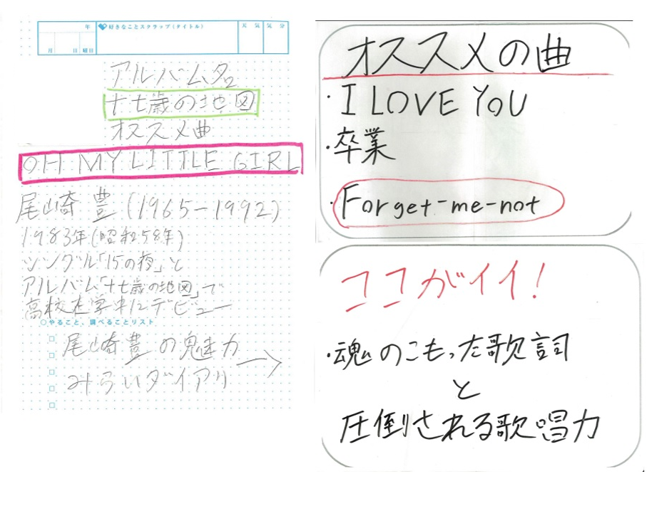 年
月 日 曜日
好きなことスクラップ(タイトル)
天気 気分
アルバム名
十七歳の地図
オススメ曲
OH MY LITTLE GIRL
尾崎豊(1965-1992)
1983年(昭和58年)
シングル「15の夜」と
アルバム「十七歳の地図」で
高校在学中にデビュー
○やること、調べることリスト
尾崎豊の魅力
みらいダイアリ
オススメの曲
・I LOVE YOU
・卒業
・Forget-me-not
ココがイイ!
・魂のこもった歌詞
と
圧倒される歌唱力